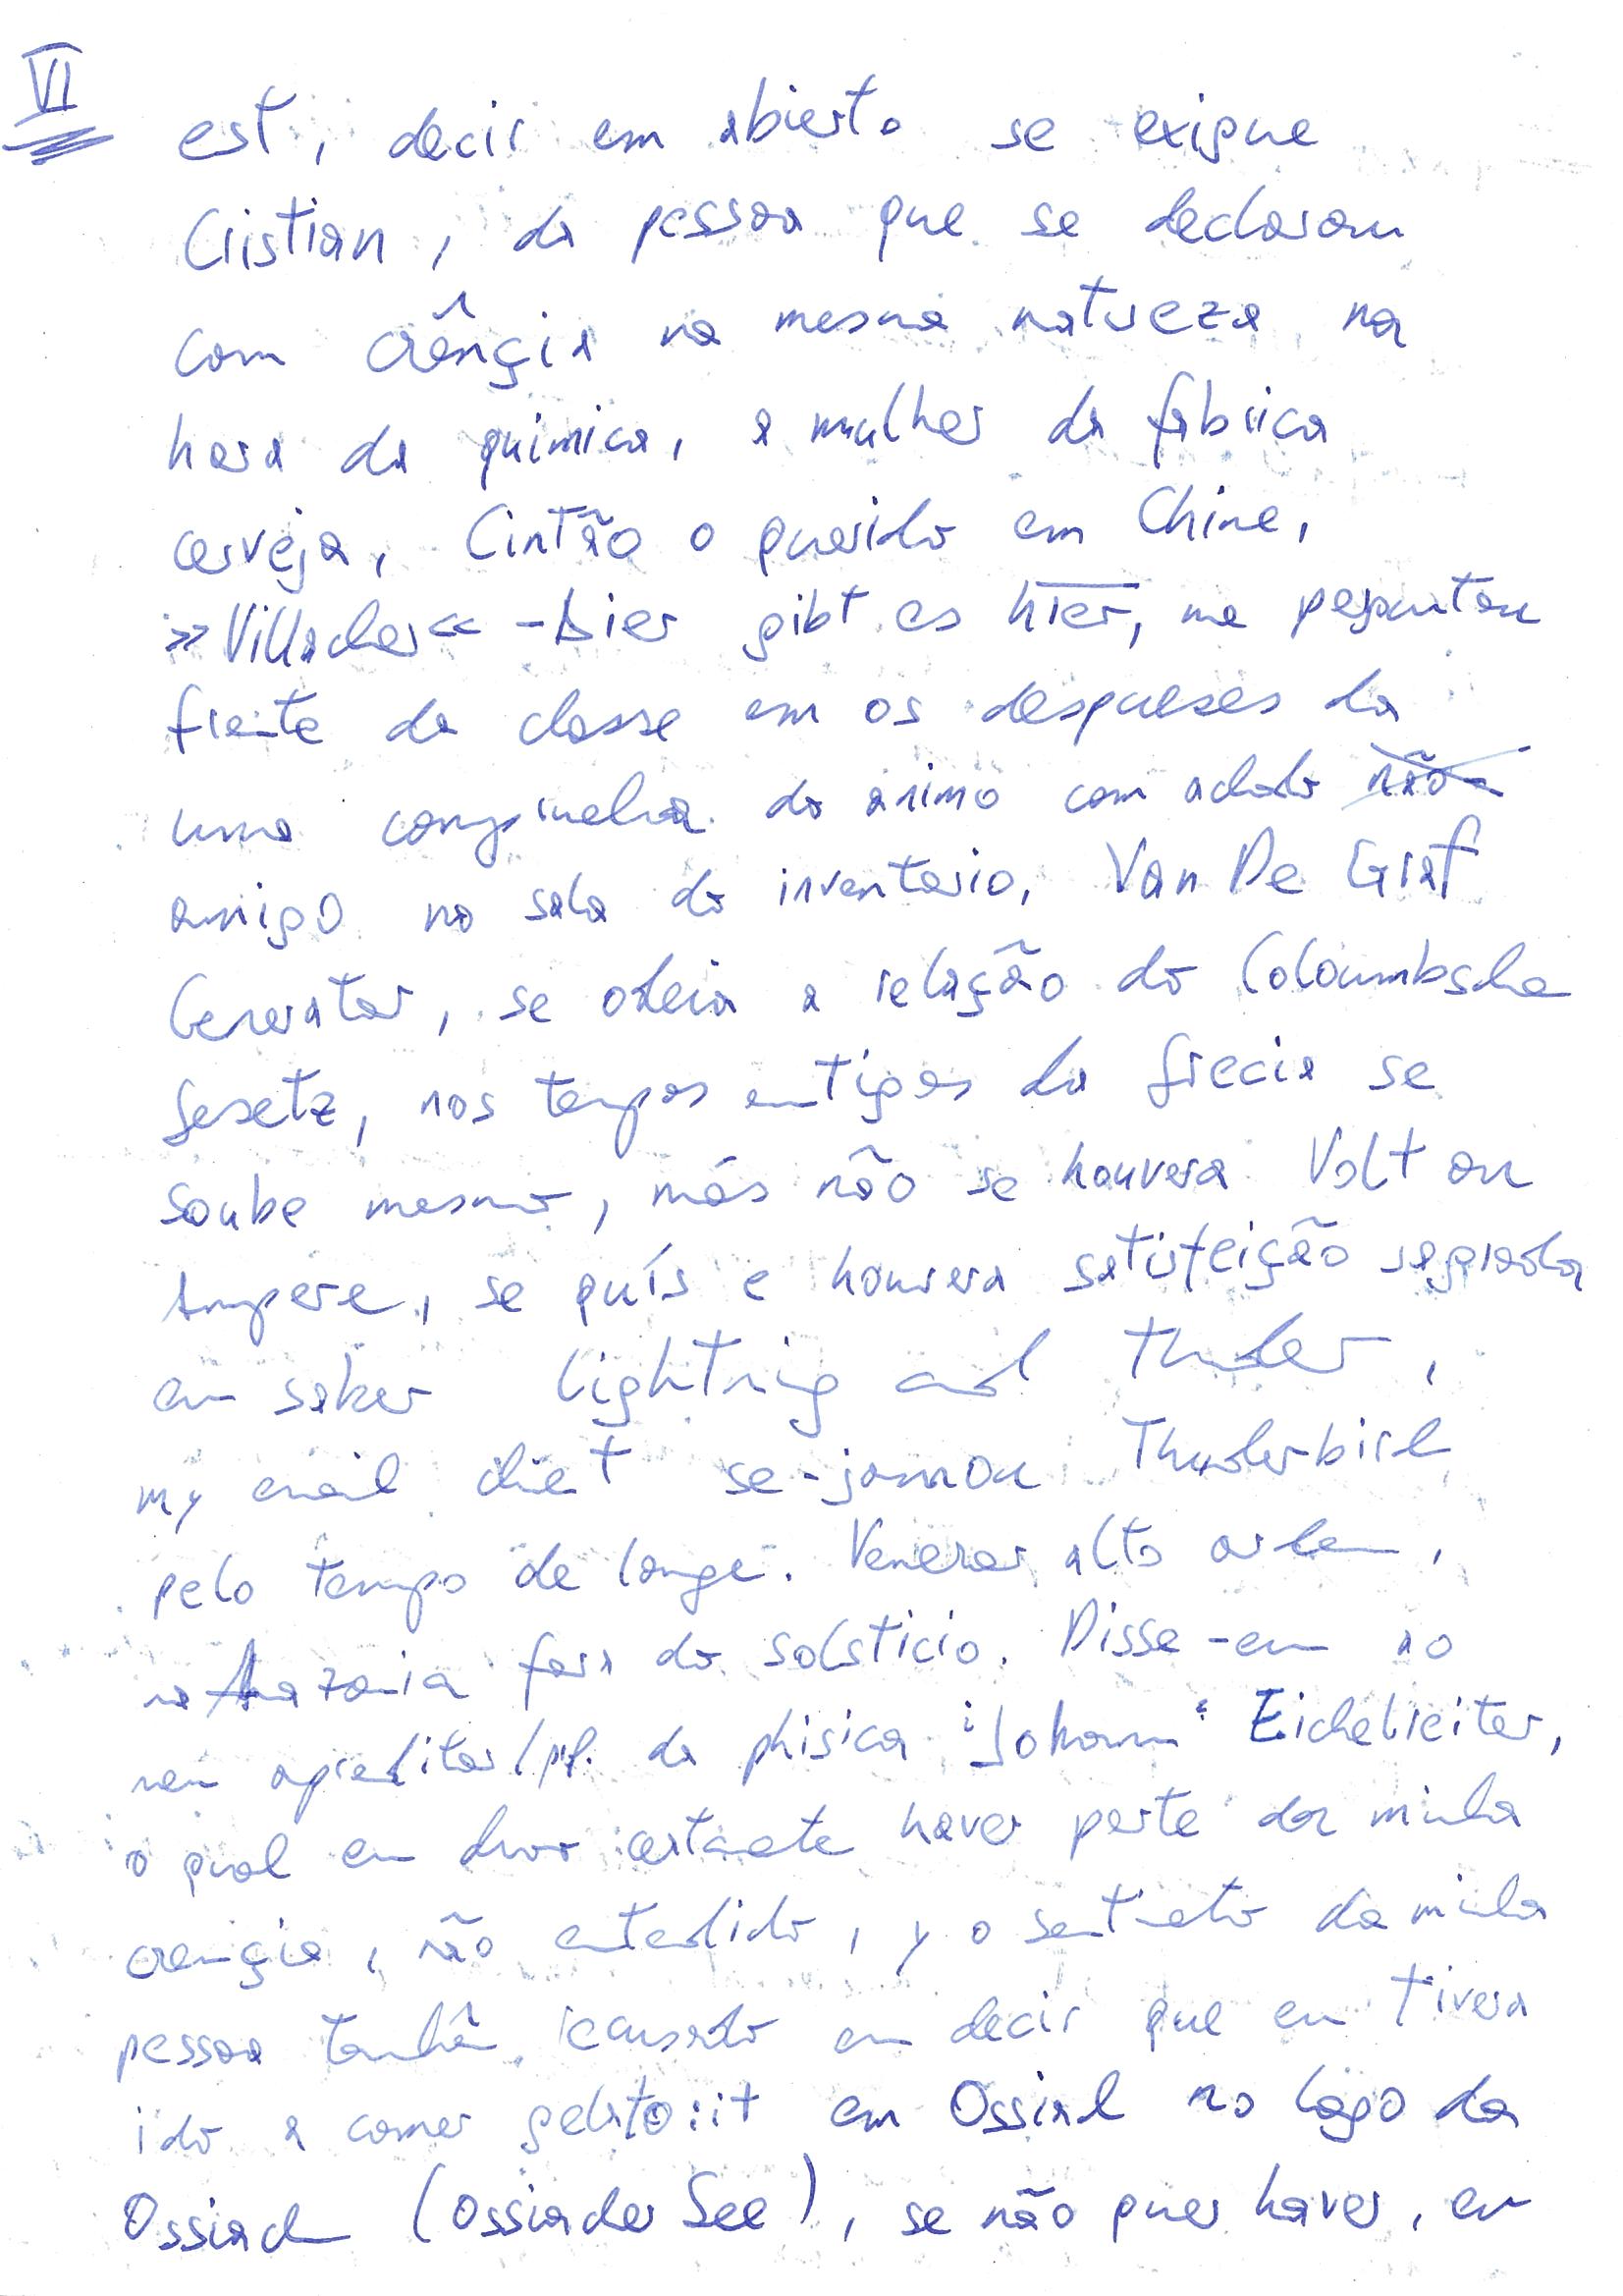 VI
est, decir em abierto se exigue
Cristian, da pessoa que se declaram
com crênçia na mesma natureza na
hora da quimica, a mulher da fabrica
cerveja, Cintão o querido em Chine,
»Villacher« -Bier gibt es hier, me peguntou
frente da classe em os despueses da
uma companelha do animo com achado não
amigo na sala do inventario, Van De Graf
Generator, se odeia a relação do Coloumbsche
Gesetz, nos tempos antigos da Grecia se
soube mesmo, más não se houvera Volt ou
Ampere, se quís e houvera satisfeição segrada
em saber lightning and Thunder,
my email client se-jamou Thunderbird
pelo tempo de longe. Venerar alto orden,
na Amazonia fora do solsticio. Disse-em ao
nem apreditar/prf. da phisica "Johann" Eichelreiter,
o qual eu devo certamente haver parte da minha
crençia, não entendido, y o sentimento da minha
pessoa também recusado em decir que eu tivera
ido a comer gelato:it em Ossiach no lago da
Ossiach (Ossiacher See), se não quer haver, eu